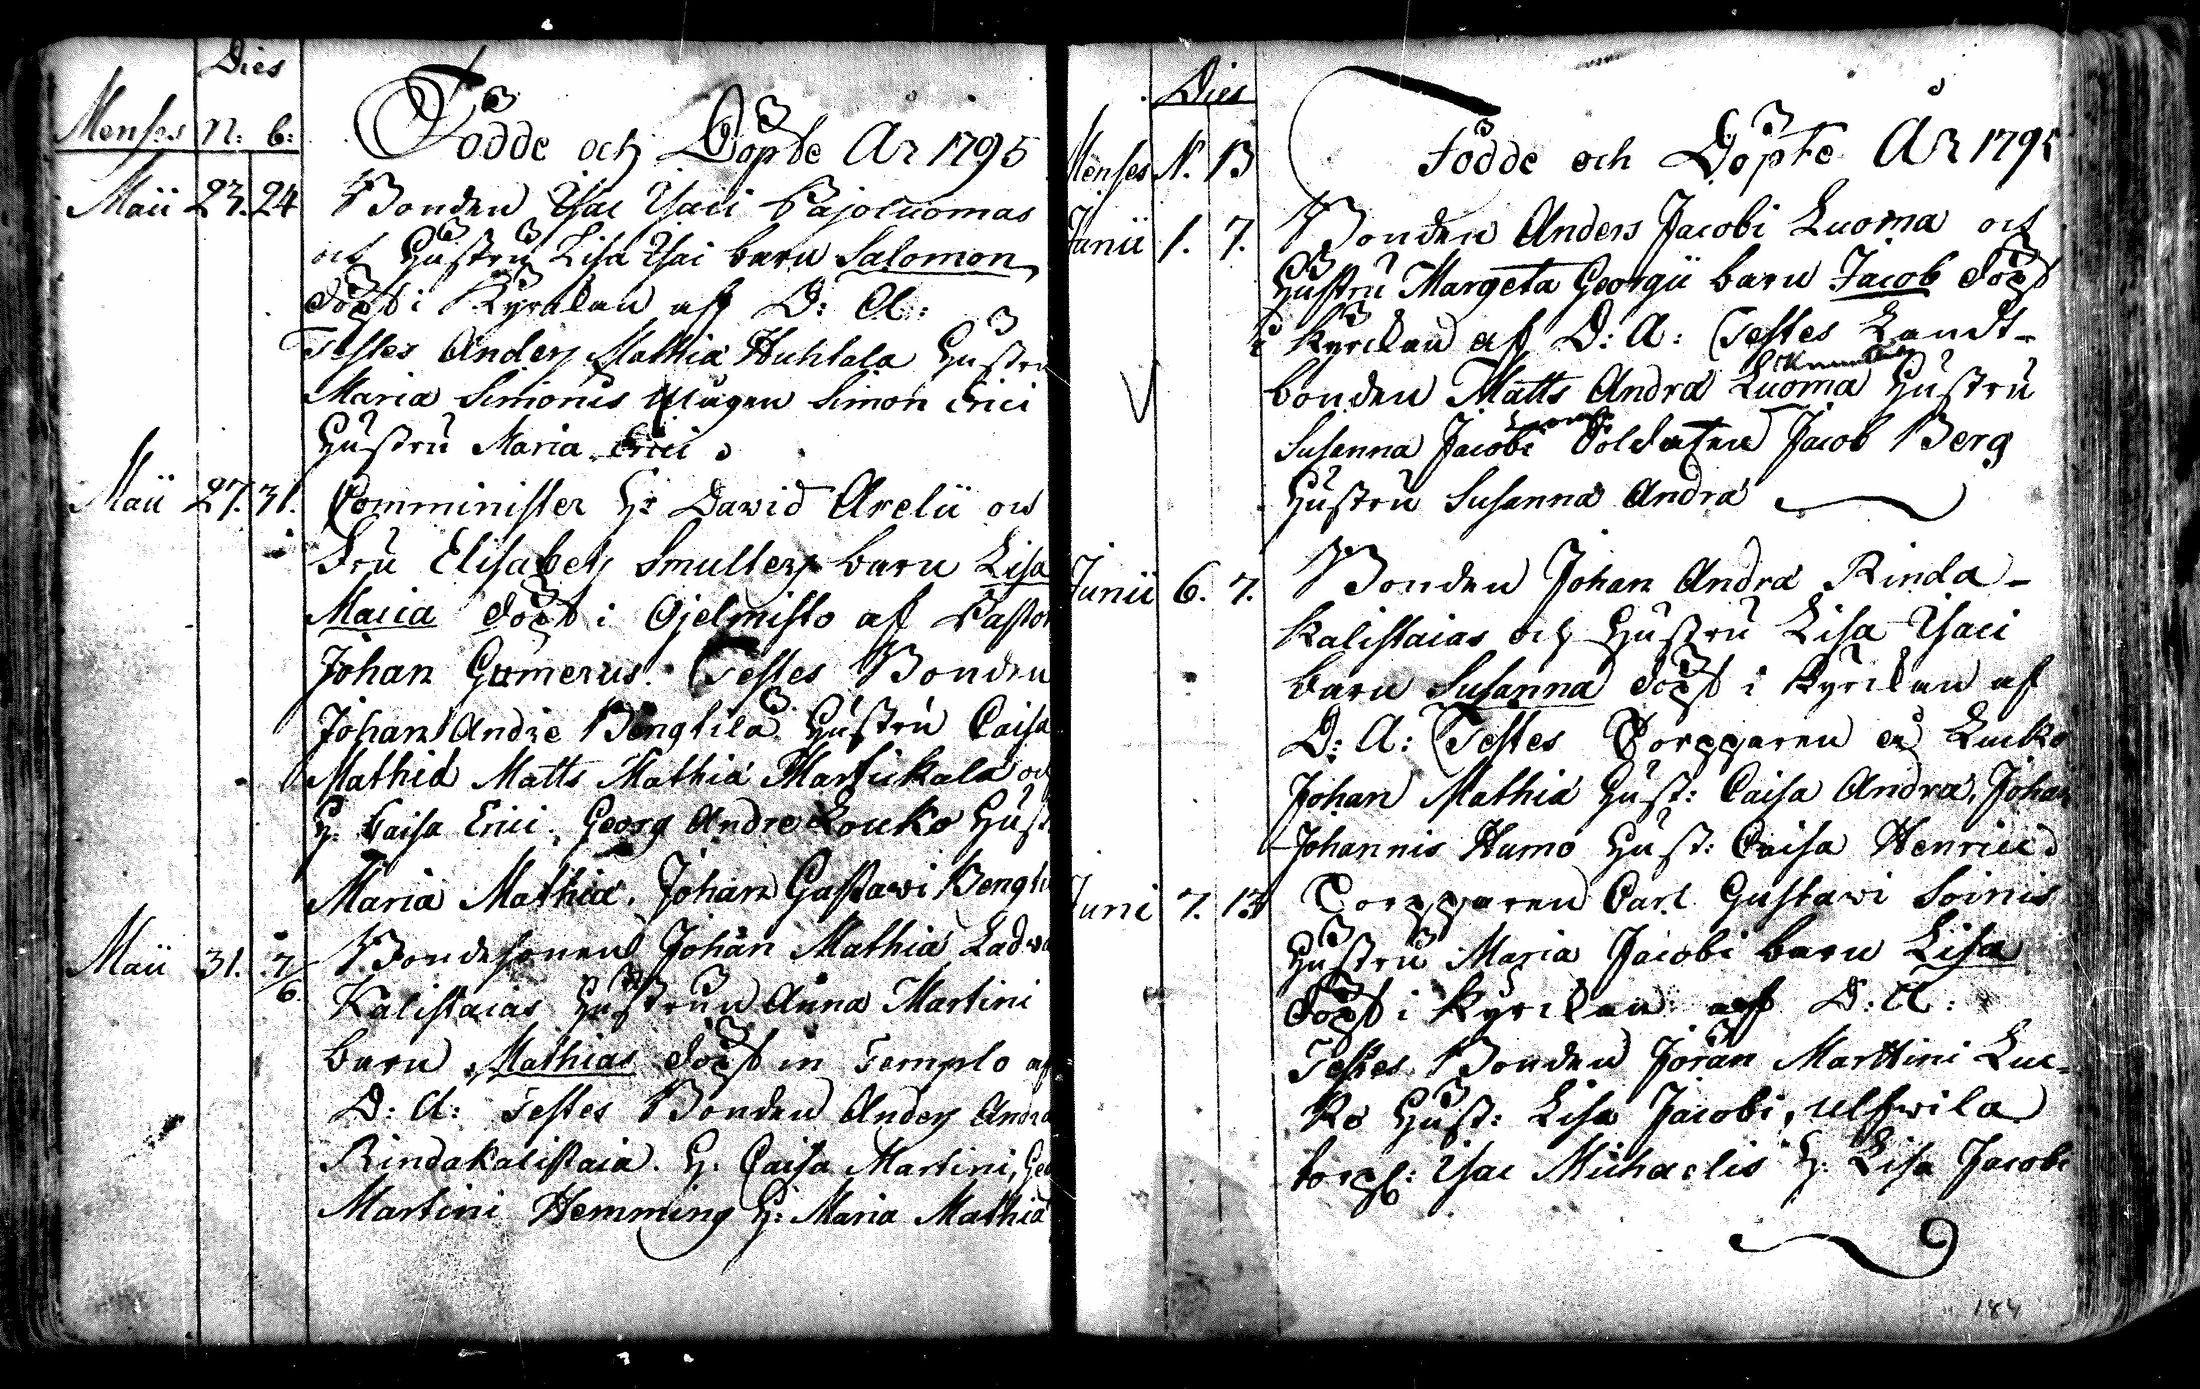 Dies
Menses N: b:
Födde och Döpte År 1795
Maii 23. 24 Bonden Isac Isaci Pajoluomas
och Hustru Lisa Isaci barn Salomon
döpt i Kyrckan aff D: A:
Testes Anders Mathiä Huhtala Hustru
Maria Simonis Pigan Simon Erici
Hustru Maria Erici
Maii 27. 31. Comminister Hr David Arelii och
Fru Elisabeth Smulters barn Lisa
Maria döpt i Ojelmisto af Pastor
Johan Gumerus. Testes Bonden
Johan Andræ Bengtilä Hustru Caisa
Mathiä Matts Mathiä Martickala och
H: Caisa Erici, Georg Andre Louko Hust
Maria Mathiä. Johan Gustawi Bengti
Maii 31. 7/6. Bondesonen Johan Mathiä Ladwa
Kalistaias Hustrun Anna Martini
barn Mathias döpt in Templo af
D: A: Testes Bonden Anders Andra
Rindakalistaia. H: Caisa Martini, Geo
Martini Hemming H: Maria Mathiä
Dies
Menses N. B
Födde och Döpte År 1795
Junii 1. 7. Bonden Anders Jacobi Luoma och
Hustru Margeta Georgii barn Jacob döpt
i Kyrckan af D: A: Testes Landt-
bonden Matts Andra Luoma Hustru
Susanna Jacobi Soldaten Jacob Berg
Hustru Susanna Andra
Junii 6. 7. Bonden Johan Andra Rinda-
kalistaias och Hustru Lisa Isaci
barn Susanna döpt i Kyrckan af
D: A: Testes Torpparen på Lucko
Johan Mathiä Hust: Caisa Andra, Johan
Johannis Humo Hust: Caisa Henrici
Juni 7. 13 Torpparen Carl Gustavi Soinis
Hustru Maria Jacobi barn Lisa
döpt i Kyrckan aff D: A:
Testes Bonden Jöran Marttini Luc-
ko Hust: Lisa Jacobi, Ulfwila
torp: Isac Michaelis H: Lisa Jacobi
184